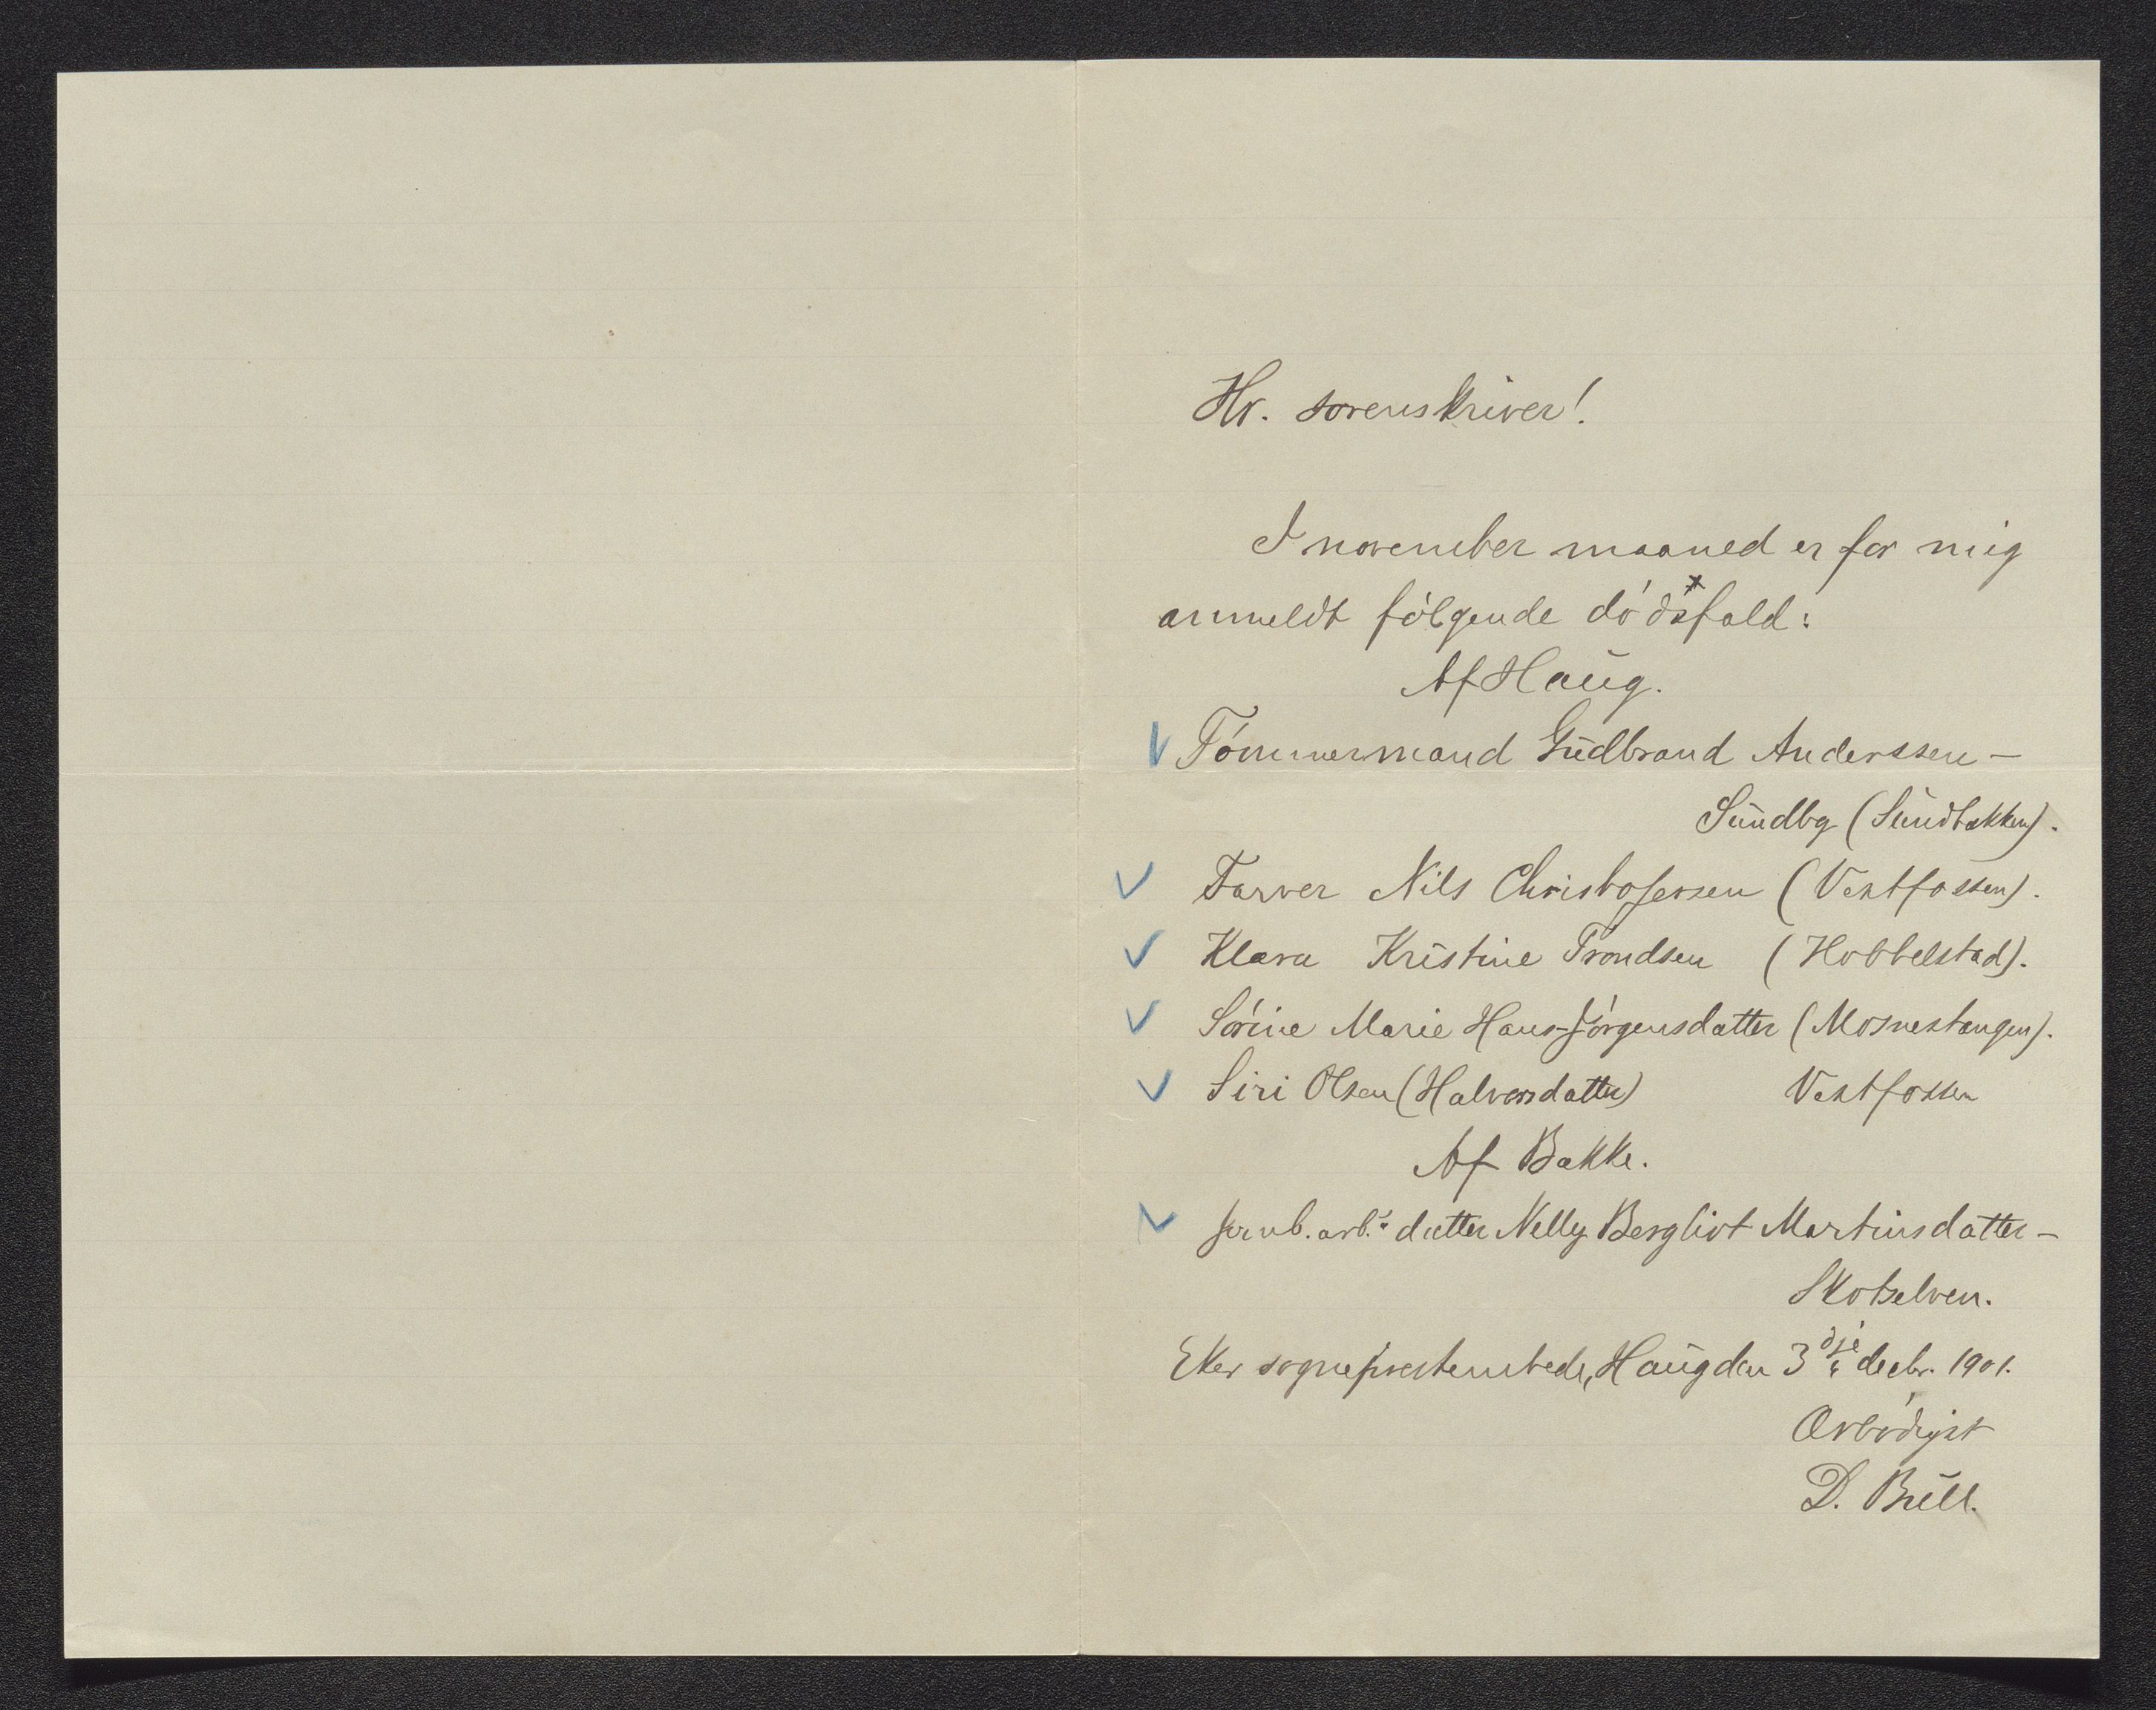 Hr. sorenskriver!
I november maaned er for mig
anmeldt følgende dødsfald:
Af Haug.
Tømmermand Gudbrand Anderssen —
Sundby (Sundbakken).
Farver Nils Christofersen (Vestfossen).
Klara Kristine Trondsen (Hobbelstad).
Sørine Marie Hans-Jørgensdatter (Mosnestangen).
Siri Olsen (Halvorsdatter) Vestfossen
Af Bakke.
Jernb. arb.s datter Nelly Bergliot Martinsdatter —
Skotselven.
Eker sogneprestembede, Haug den 3dje decbr. 1901.
Ærbødigst
D. Bull.